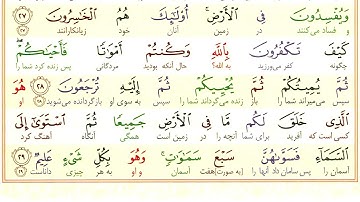 وَيُفْسِدُونَ فِي الْأَرْضِ أُولَٰئِكَ هُمُ الْخَاسِرُونَ ﴿٢٧﴾
و فساد می‌کنند در زمین آنان خود زیانکارانند
كَيْفَ تَكْفُرُونَ بِاللَّهِ وَكُنتُمْ أَمْوَاتًا فَأَحْيَاكُمْ
چگونه کفر می‌ورزید به الله؟ حال آنکه بودید مردگانی پس زنده کرد شما را
ثُمَّ يُمِيتُكُمْ ثُمَّ يُحْيِيكُمْ ثُمَّ إِلَيْهِ تُرْجَعُونَ ﴿٢٨﴾ هُوَ
سپس می‌میراند شما را باز زنده می‌گرداند شما را سپس به سوی او بازگردانده می‌شوید او
الَّذِي خَلَقَ لَكُم مَّا فِي الْأَرْضِ جَمِيعًا ثُمَّ اسْتَوَىٰ إِلَى
کسی است که آفرید برای شما آنچه را در زمین است همگی آنگاه آهنگ کرد
السَّمَاءِ فَسَوَّاهُنَّ سَبْعَ سَمَاوَاتٍ وَهُوَ بِكُلِّ شَيْءٍ عَلِيمٌ ﴿٢٩﴾
آسمان را پس سامان داد آنها را (به صورت) هفت آسمان و او به هر چیزی داناست